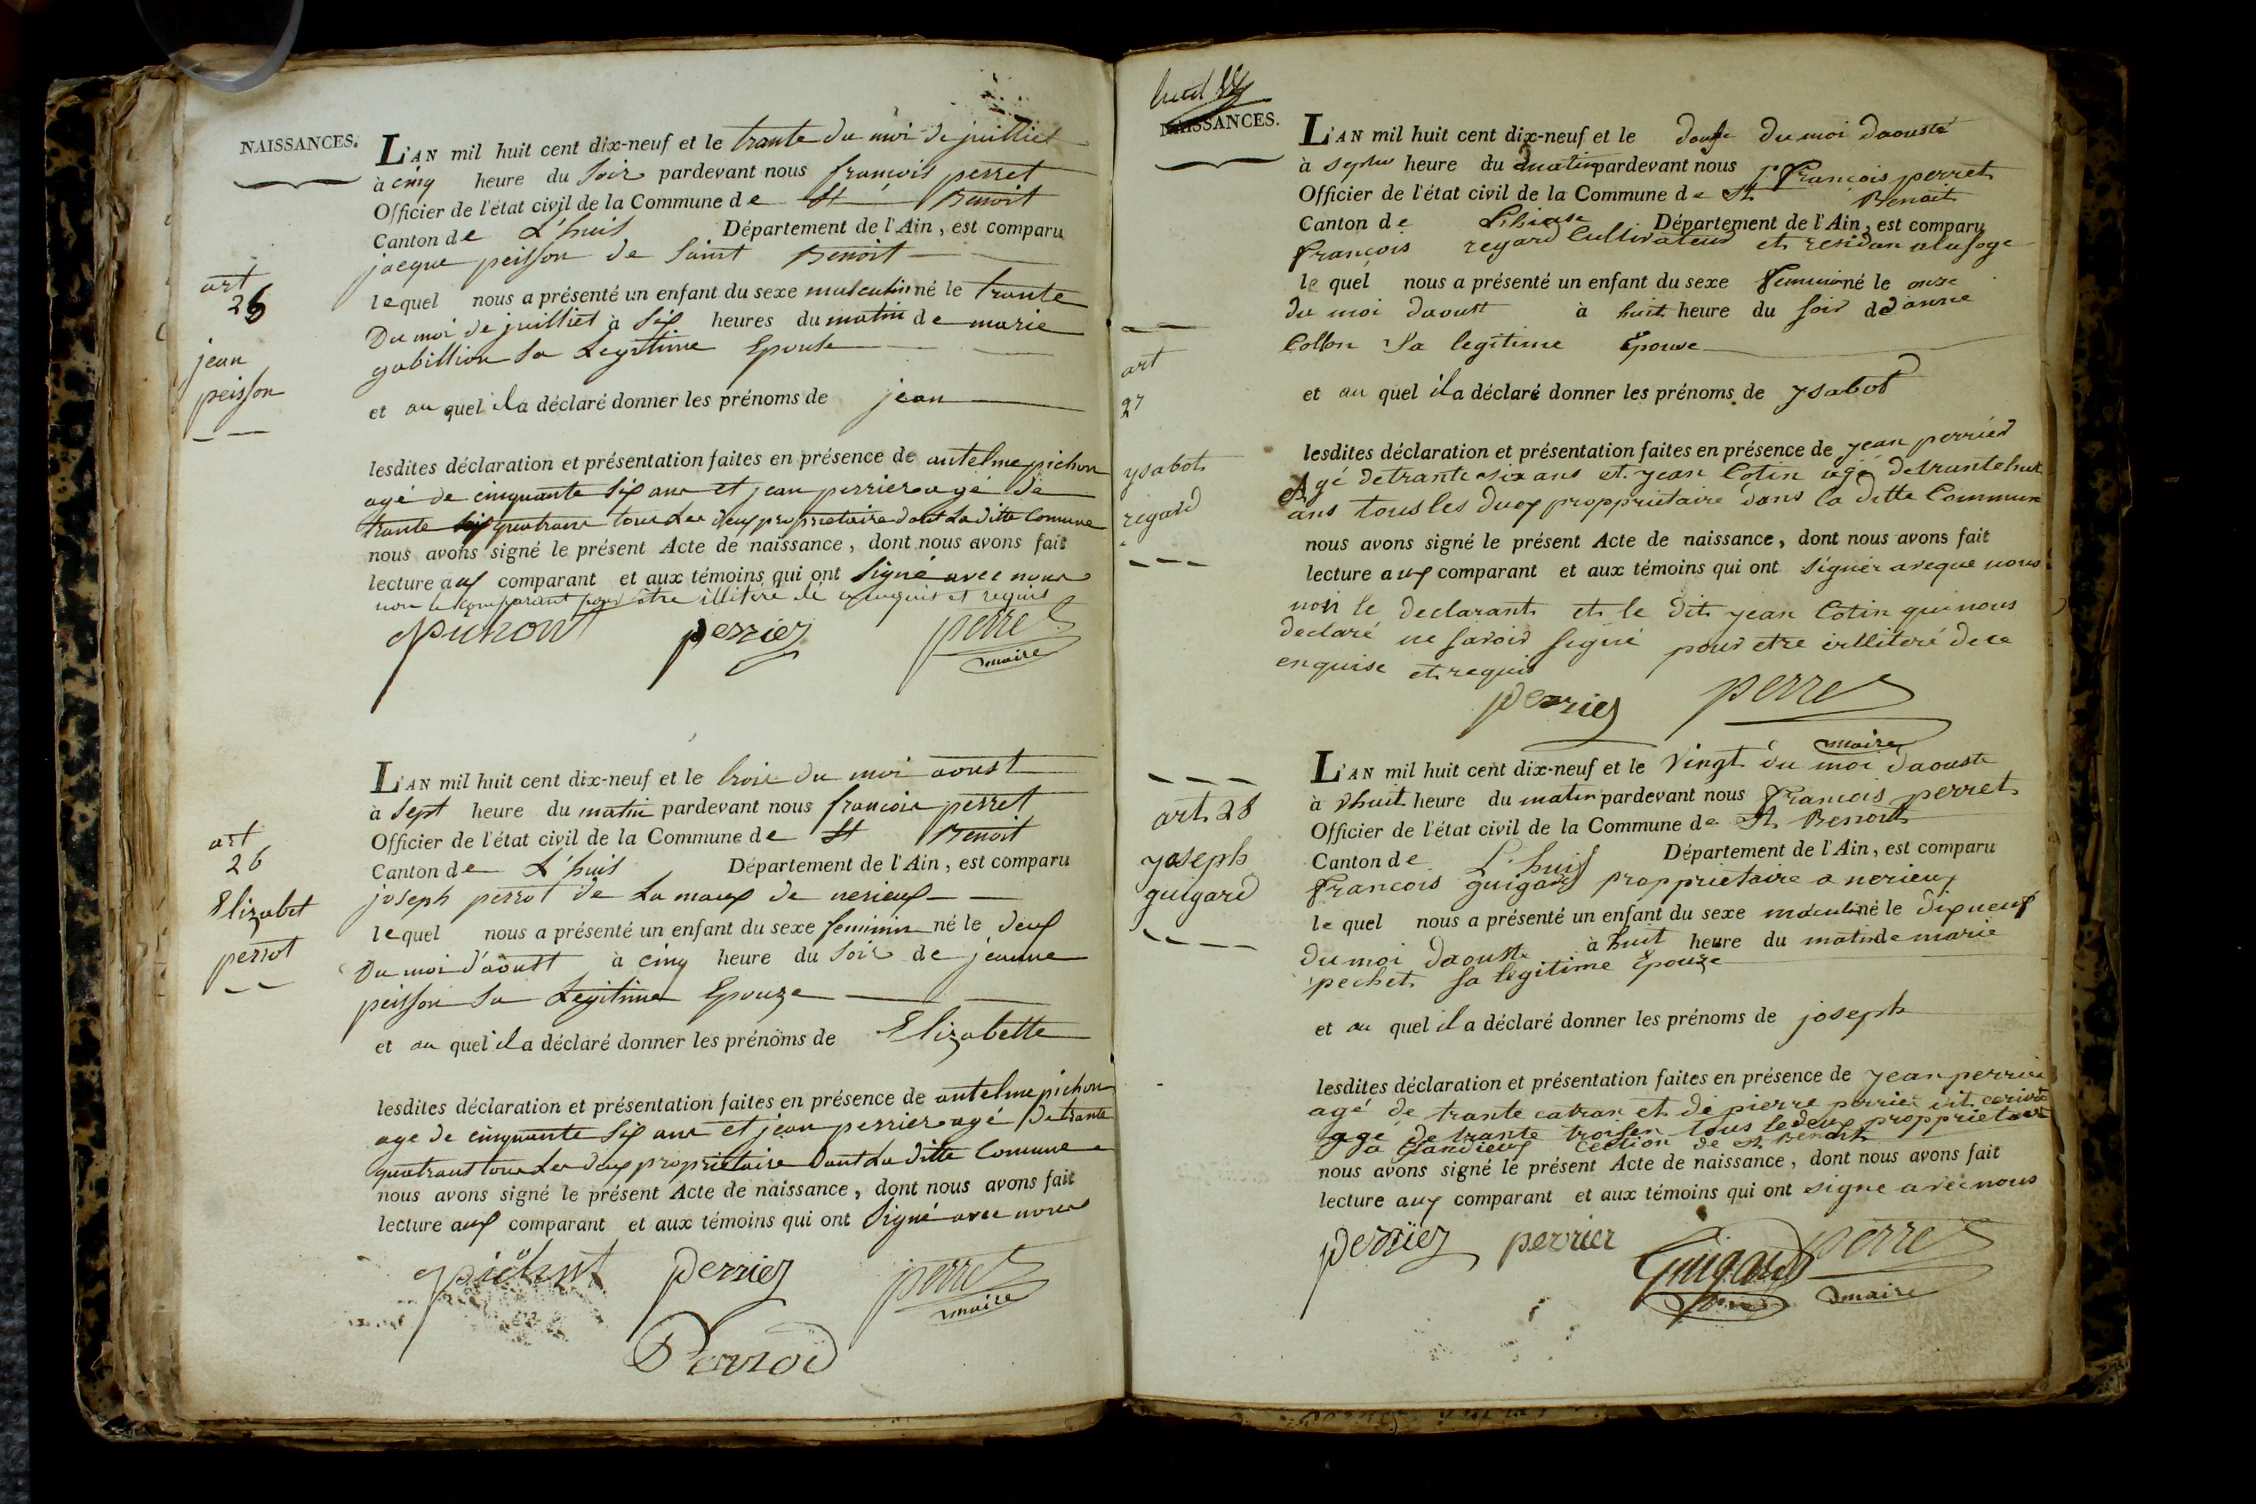 NAISSANCES.
L'AN mil huit cent dix-neuf et le trante du moi de juilliet
à cinq heure du soir pardevant nous francois perret
Officier de l'état civil de la Commune de St Benoit
Canton de L'huis Département de l'Ain, est comparu
jacque peisson de saint Benoit
lequel nous a présenté un enfant du sexe masculin né le trante
Du moi de juilliet à six heures du matin de marie
gabillion sa Legitime Epouse
et au quel il a déclaré donner les prénoms de jean
lesdites déclaration et présentation faites en présence de antelme pichon
agé de cinquante six ans et jean perrier agé de
trante quatrans tous Les deux proprietaire dant La ditte Comune
nous avons signé le présent Acte de naissance, dont nous avons fait
lecture aux comparant et aux témoins qui ont signé avec nous
non le comparant pour être illiteré de ce enquis et requis
Pichont perrier perret
maire
art
25
jean
peisson
L'AN mil huit cent dix-neuf et le trois du moi aoust
à sept heure du matin pardevant nous francois perret
Officier de l'état civil de la Commune de St Benoit
Canton de L'huis Département de l'Ain, est comparu
joseph perrot de La maux de nerieux
lequel nous a présenté un enfant du sexe feminin né le deux
Du moi d'aoust à cinq heure du soir de jeanne
peisson sa Legitime Epouze
et au quel il a déclaré donner les prénoms de Elizabette
lesdites déclaration et présentation faites en présence de antelme pichon
age de cinquante six ans et jean perrier agé de trante
quatrans tous Les deux proprietaire Dant La ditte Comune
nous avons signé le présent Acte de naissance, dont nous avons fait
lecture aux comparant et aux témoins qui ont signé avec nous
pichont perrier perret
maire
Perrod
art
26
Elizabet
perrot
NAISSANCES.
L'AN mil huit cent dix-neuf et le douse du moi daouste
à septer heure du matin pardevant nous françois perret
Officier de l'état civil de la Commune de St Benoit
Canton de Département de l'Ain, est comparu
françois regard Cultivateur et residan alasoge
le quel nous a présenté un enfant du sexe feminin né le onze
du moi daoust à huit heure du soir de danne
Collon sa legitime Epouse
et au quel il a déclaré donner les prénoms de ysabot
lesdites déclaration et présentation faites en présence de jean perrier
Agé de trante six ans et jean Cotin agé de trante huit
ans tous les dux propprietaire dans la ditte Commune
nous avons signé le présent Acte de naissance, dont nous avons fait
lecture aux comparant et aux témoins qui ont signér aveque nous
non le declarant et le dit jean Cotin qui nous
declaré ne savoir signé pour etre illiteré de ce
enquise et requis
perrier perret
maire
art
27
ysabot
regard
L'AN mil huit cent dix-neuf et le vingt du moi daouste
à dhuit heure du matin pardevant nous francois perret
Officier de l'état civil de la Commune de St Benoit
Canton de L'huis Département de l'Ain, est comparu
francois guigard propprietaire a nerieux
le quel nous a présenté un enfant du sexe masculin né le dixneuf
du moi daouste à huit heure du matin de marie
pechet sa legitime Epouze
et au quel il a déclaré donner les prénoms de joseph
lesdites déclaration et présentation faites en présence de jean perrier
agé de trante catran et de pierre perrier dit
agé de trante troisen tous ledeux propprietaire
a Glandieux cection de St Benoit
nous avons signé le présent Acte de naissance, dont nous avons fait
lecture aux comparant et aux témoins qui ont signe avec nous
perrier perrier Guigard perret
maire
art 28
joseph
guigard